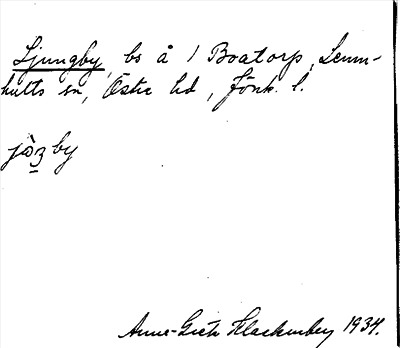 Ljungby, bs å 1 Boatorp, Lemn-
hults sn, Östra hd, Jönk. l.
jòʒby
Anna-Greta Hackenberg 1934.